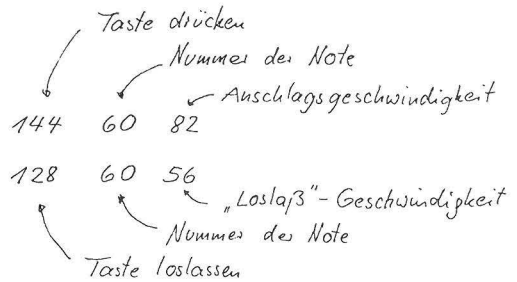 Taste drücken
Nummer der Note
Anschlagsgeschwindigkeit
144 60 82
128 60 56
„Loslaß"-Geschwindigkeit
Nummer der Note
Taste loslassen